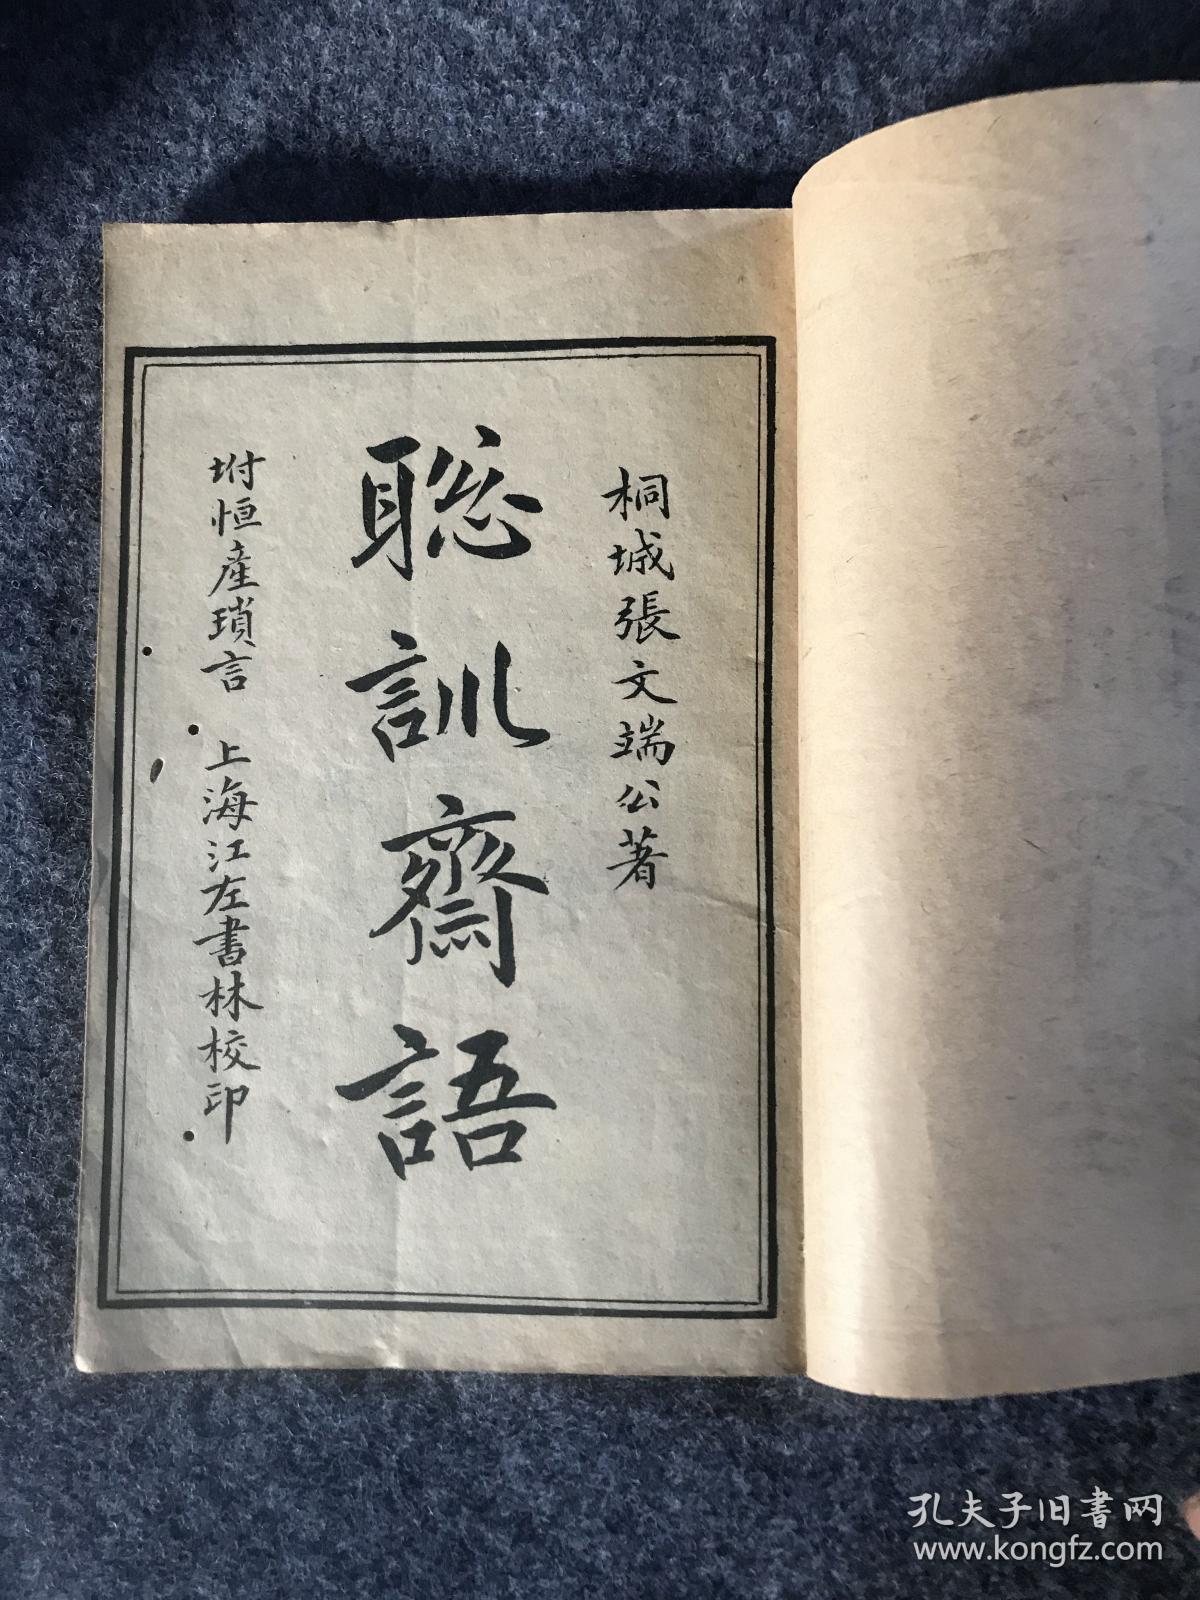 桐城張文端公著
聡訓齋語
坿恒產瑣言 上海江左書林校印
孔夫子旧書网
www.kongfz.com